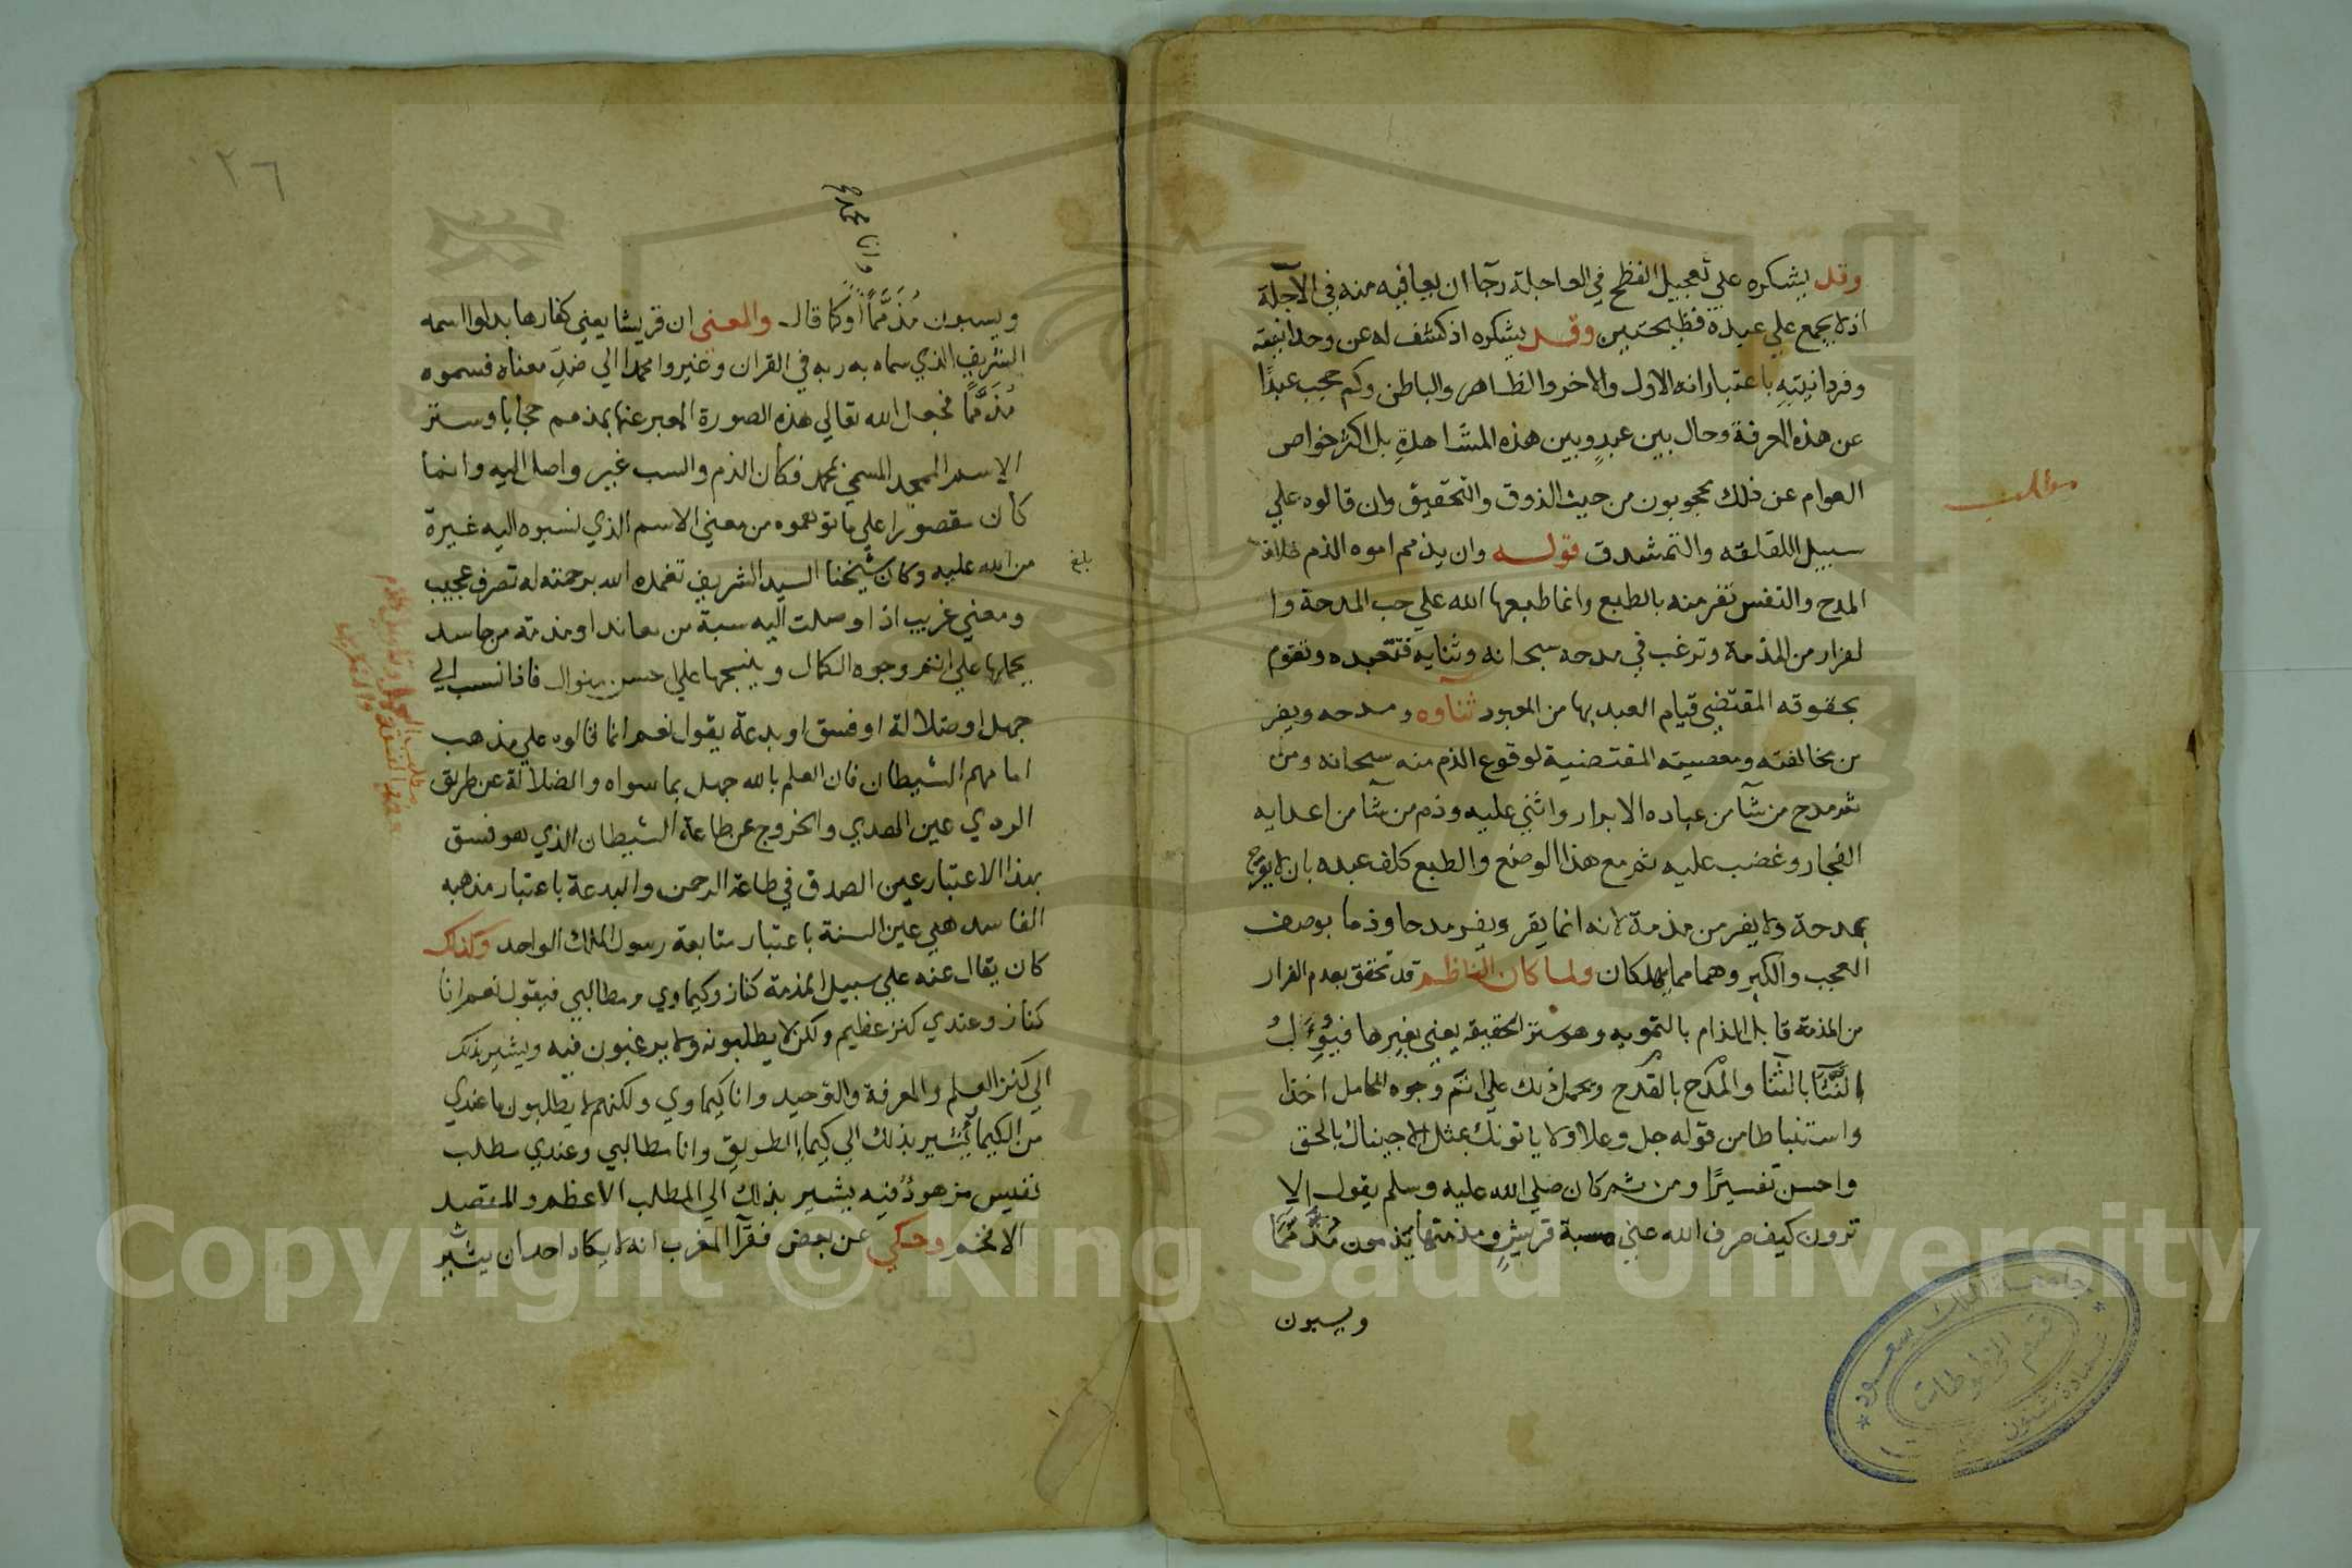 وقد يشكره علي تعجيل الفظح في العاجلة رجآ ان يعافيه منه في الآجلة
اذ لا يجمع علي عبيده فظيحتين وقد يشكره اذ كشف له عن وحدانيته
وفردانيتهِ باعتبار انه الاول والاخر والظاهر والباطن وكم حجب عبدًا
عن هذه المعرفة وحال بين عبدٍ وبين هذه المشاهدةِ بل اكثر خواص
العوام عن ذلك محجوبون من حيث الذوق والتحقيق وان قالوه علي
مطلب
سبيل اللقلقه والتمشدق قوله وان يذمم اموه الذم خلاف
المدح والنفس تفر منه بالطبع وانما طبعها الله علي حب المدحة وا
لفرار من المذمة وترغب في مدحه سبحانه وثنايه فتتعبده وتقوم
بحقوقه المقتضي قيام العبد بها من المعبود ثناوه ومدحه ويفر
من مخالفته ومعصيته المقتضية لوقوع الذم منه سبحانه ومن
ثم مدح من شآ من عباده الابرار واثني عليه وذم من شآ من اعدايه
الفجار وغضب عليه ثم مع هذا الوضع والطبع كلف عبده بان لا
بمدحة ولا يفر من مذمة لانه انما يقر ويفر مدحا وذما بوصف
العجب والكبر وهما مما يهلكان ولما كان الناظم قد تحقق بعدم الفرار
من المذمة قابل الذام بالتمويه وهو ستر الحقيقة يعني بغيرها فيؤل
بالثنا والمدح بالقدح ويحمل ذلك علي اتم وجوه المحامل اخذا
واستنباطا من قوله جل وعلا ولا ياتونك بمثل الا جيناك بالحق
واحسن تفسيرًا ومن ثم كان صلي الله عليه وسلم يقول الا
ترون كيف صرف الله عني مسبة قريشٍ ومذمتها يذمون مُذَمَّمًا
ويسبون
٢٦
وانا محمد
ويسبون مُذَمَّمًا اوكما قال والمعني ان قريشا يعني كفارها بدلوا اسمه
الشريف الذي سماه به ربه في القران وغيروا محمدا الي ضدِ معناه فسموه
مُذَمَّمًا فجعل الله تعالي هذه الصورة المعبر عنها بمذمم حجابا وستر
الاسم الممجد المسمي بمحمد فكان الذم والسب غير واصل اليه وانما
كان مقصورا علي ما توهموه من معني الاسم الذي نسبوه اليه غيرة
بلغ
من الله عليه وكان شيخنا السيد الشريف تغمده الله برحمته له تصرف عجيب
ومعني غريب اذا وصلت اليه سبة من معاند او مذمة من حاسد
يحملها علي اتم وجوه الكمال وينسجها علي احسن منوال فاذا نسب الي
جهل او ضلالة او فسق او بدعة يقول نعم انما قالوه علي مذهب
امامهم الشيطان فان العلم بالله جهل بما سواه والضلالة عن طريق
الردي عين الهدي والخروج عن طاعة الشيطان الذي هو فسق
بهذا الاعتبار عين الصدق في طاعة الرحمن والبدعة باعتبار مذهبه
الفاسد هي عين السنة باعتبار متابعة رسول الملك الواحد وكذلك
كان يقال عنه علي سبيل المذمة كناز وكيماوي ومطالبي فيقول نعم انا
كناز وعندي كنز عظيم ولكن لا يطلبونه ولا يرغبون فيه ويشير بذلك
الي كنز العلم والمعرفة والتوحيد وانا كيماوي ولكنهم لا يطلبون ما عندي
من الكيمآ يشير بذلك الي كيمآ الطريق وانا مطالبي وعندي مطلب
نفيس مزهودٌ فيه يشير بذلك الي المطلب الاعظم والمقصد
الافخم وحكي عن بعض فقرآ المغرب انه لا يكاد احد ان يشير
جامعة الملك سعود
قسم المخطوطات
Copyright © King Saud University
1957